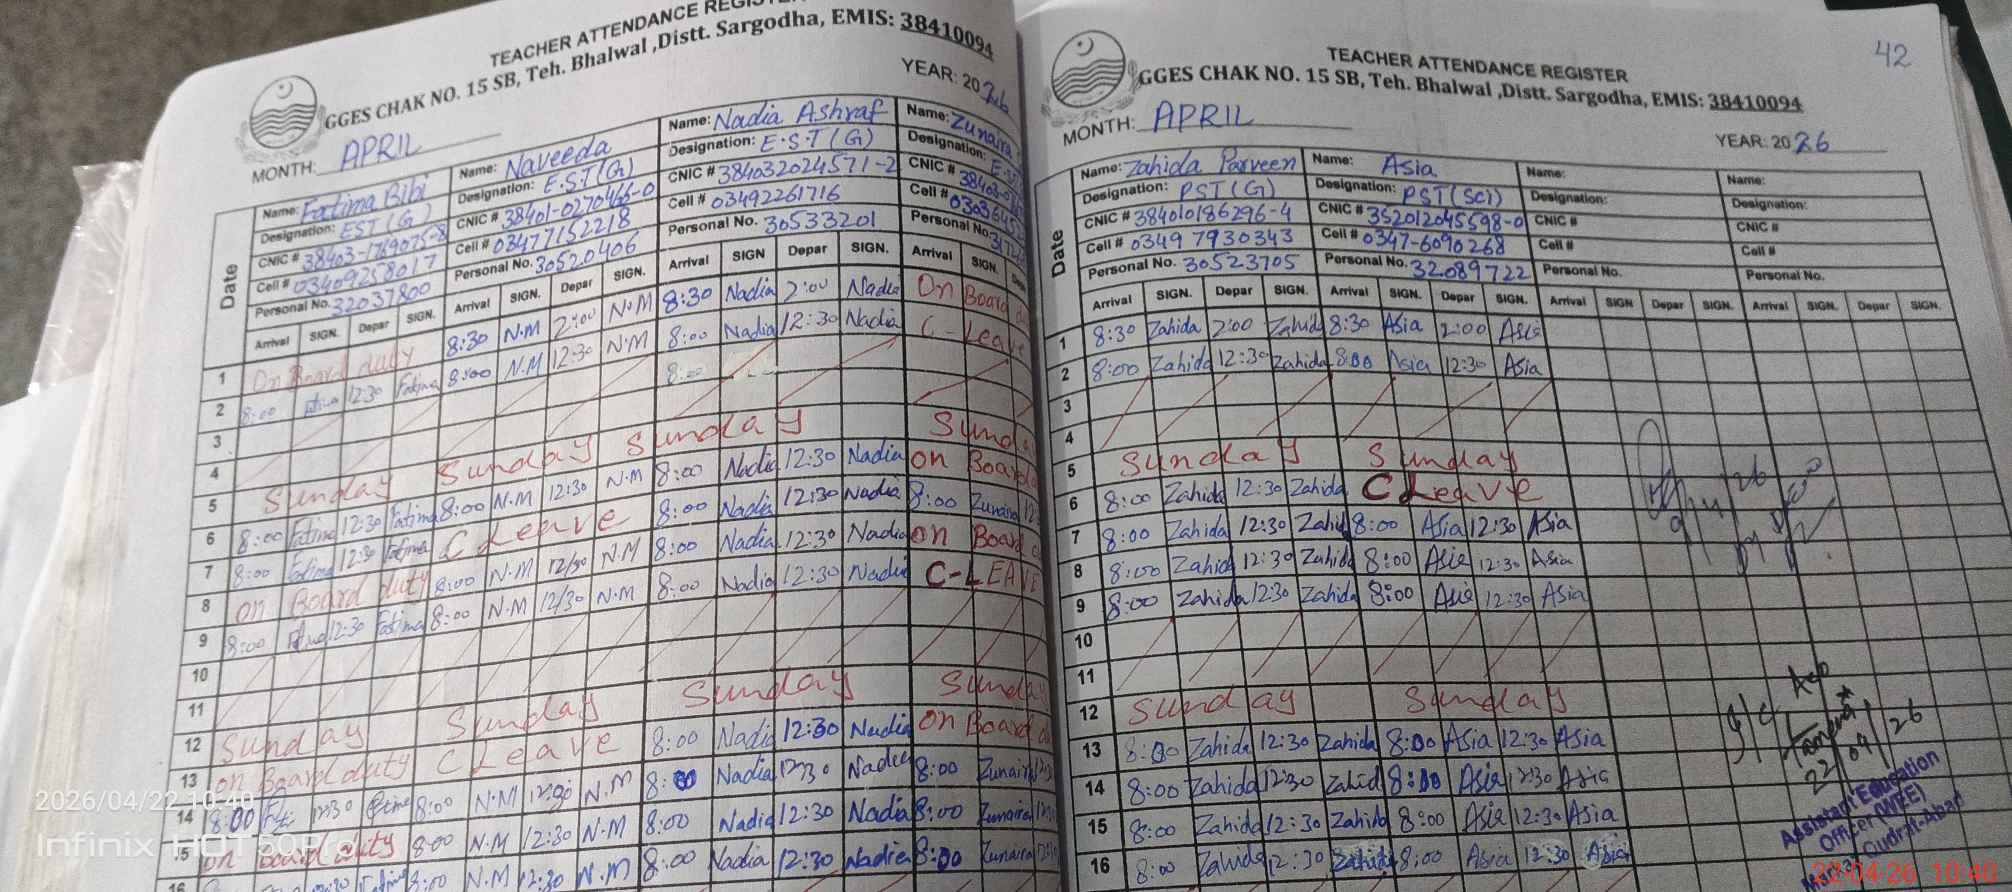 TEACHER ATTENDANCE
GGES CHAK NO. 15 SB, Teh. Bhalwal ,Distt. Sargodha, EMIS: 38410094
MONTH: APRIL
YEAR: 2026
Date
Name: Fatima Bibi
Designation: EST (G)
Personal No. 32037800
Arrival SIGN. Depar SIGN.
Name: Naveeda
Designation: E.S.T (G)
CNIC # 38401-0270466-0
Cell # 03477152218
Personal No. 30520406
Arrival SIGN. Depar SIGN.
Name: Nadia Ashraf
Designation: E.S.T (G)
CNIC # 384032024571-2
Cell # 03492261716
Personal No. 30533201
Arrival SIGN Depar SIGN.
Name: Zunaira
Designation:
CNIC #
Cell #
Personal No.
Arrival SIGN.
1 On Board duty 8:30 N.M 2:00 N.M 8:30 Nadia 2:00 Nadia On Board
2 8:00 12:30 Fatima 8:00 N.M 12:30 N.M 8:00 Nadia 12:30 Nadia C-Leave
3 8:00
4
5 Sunday Sunday Sunday Sunday
6 8:00 Fatima 12:30 Fatima 8:00 N.M 12:30 N.M 8:00 Nadia 12:30 Nadia on Board
7 8:00 Fatima 12:30 Fatima C Leave 8:00 Nadia 12:30 Nadia 8:00 Zunaira
8 on Board duty 8:00 N.M 12/30 N.M 8:00 Nadia 12:30 Nadia on Board
9 8:00 12:30 Fatima 8:00 N.M 12/30 N.M 8:00 Nadia 12:30 Nadia C-LEAVE
10
11
12 Sunday Sunday Sunday Sunday
13 on Board duty C Leave 8:00 Nadia 12:30 Nadia on Board
14 8:00 8:00 N.M 12:30 N.M 8:00 Nadia 12:30 Nadia 8:00 Zunaira
on board duty 8:00 N.M 12:30 N.M 8:00 Nadia 12:30 Nadia 8:00 Zunaira
16 8:00 N.M 12:30 N.M 8:00 Nadia 12:30 Nadia 8:00 Zunaira
2026/04/22 10:40
Infinix HOT 50Pro
42
TEACHER ATTENDANCE REGISTER
GGES CHAK NO. 15 SB, Teh. Bhalwal ,Distt. Sargodha, EMIS: 38410094
MONTH: APRIL
YEAR: 2026
Date
Name: Zahida Parveen
Designation: PST (G)
CNIC # 384010186296-4
Cell # 0349 7930343
Personal No. 30523705
Arrival SIGN. Depar SIGN.
Name: Asia
Designation: PST (Sci)
CNIC # 352012045598-0
Cell # 0347-6090268
Personal No. 32089722
Arrival SIGN. Depar SIGN.
Name:
Designation:
CNIC #
Cell #
Personal No.
Arrival SIGN Depar SIGN.
Name:
Designation:
CNIC #
Cell #
Personal No.
Arrival SIGN. Depar SIGN.
1 8:30 Zahida 2:00 Zahida 8:30 Asia 2:00 Asia
2 8:00 Zahida 12:30 Zahida 8:00 Asia 12:30 Asia
3
4
5 Sunday Sunday
6 8:00 Zahida 12:30 Zahida C Leave
7 8:00 Zahida 12:30 Zahid 8:00 Asia 12:30 Asia
8 8:00 Zahida 12:30 Zahida 8:00 Asia 12:30 Asia
9 8:00 Zahida 12:30 Zahida 8:00 Asia 12:30 Asia
10
11
12 Sunday Sunday
13 8:00 Zahida 12:30 Zahida 8:00 Asia 12:30 Asia
14 8:00 Zahida 12:30 Zahid 8:00 Asia 12:30 Asia
15 8:00 Zahida 12:30 Zahida 8:00 Asia 12:30 Asia
16 8:00 Zahida 12:30 Zahida 8:00 Asia 12:30 Asia
22/04/26
Assistant Education
Officer (WEE)
22-04-26 10:40